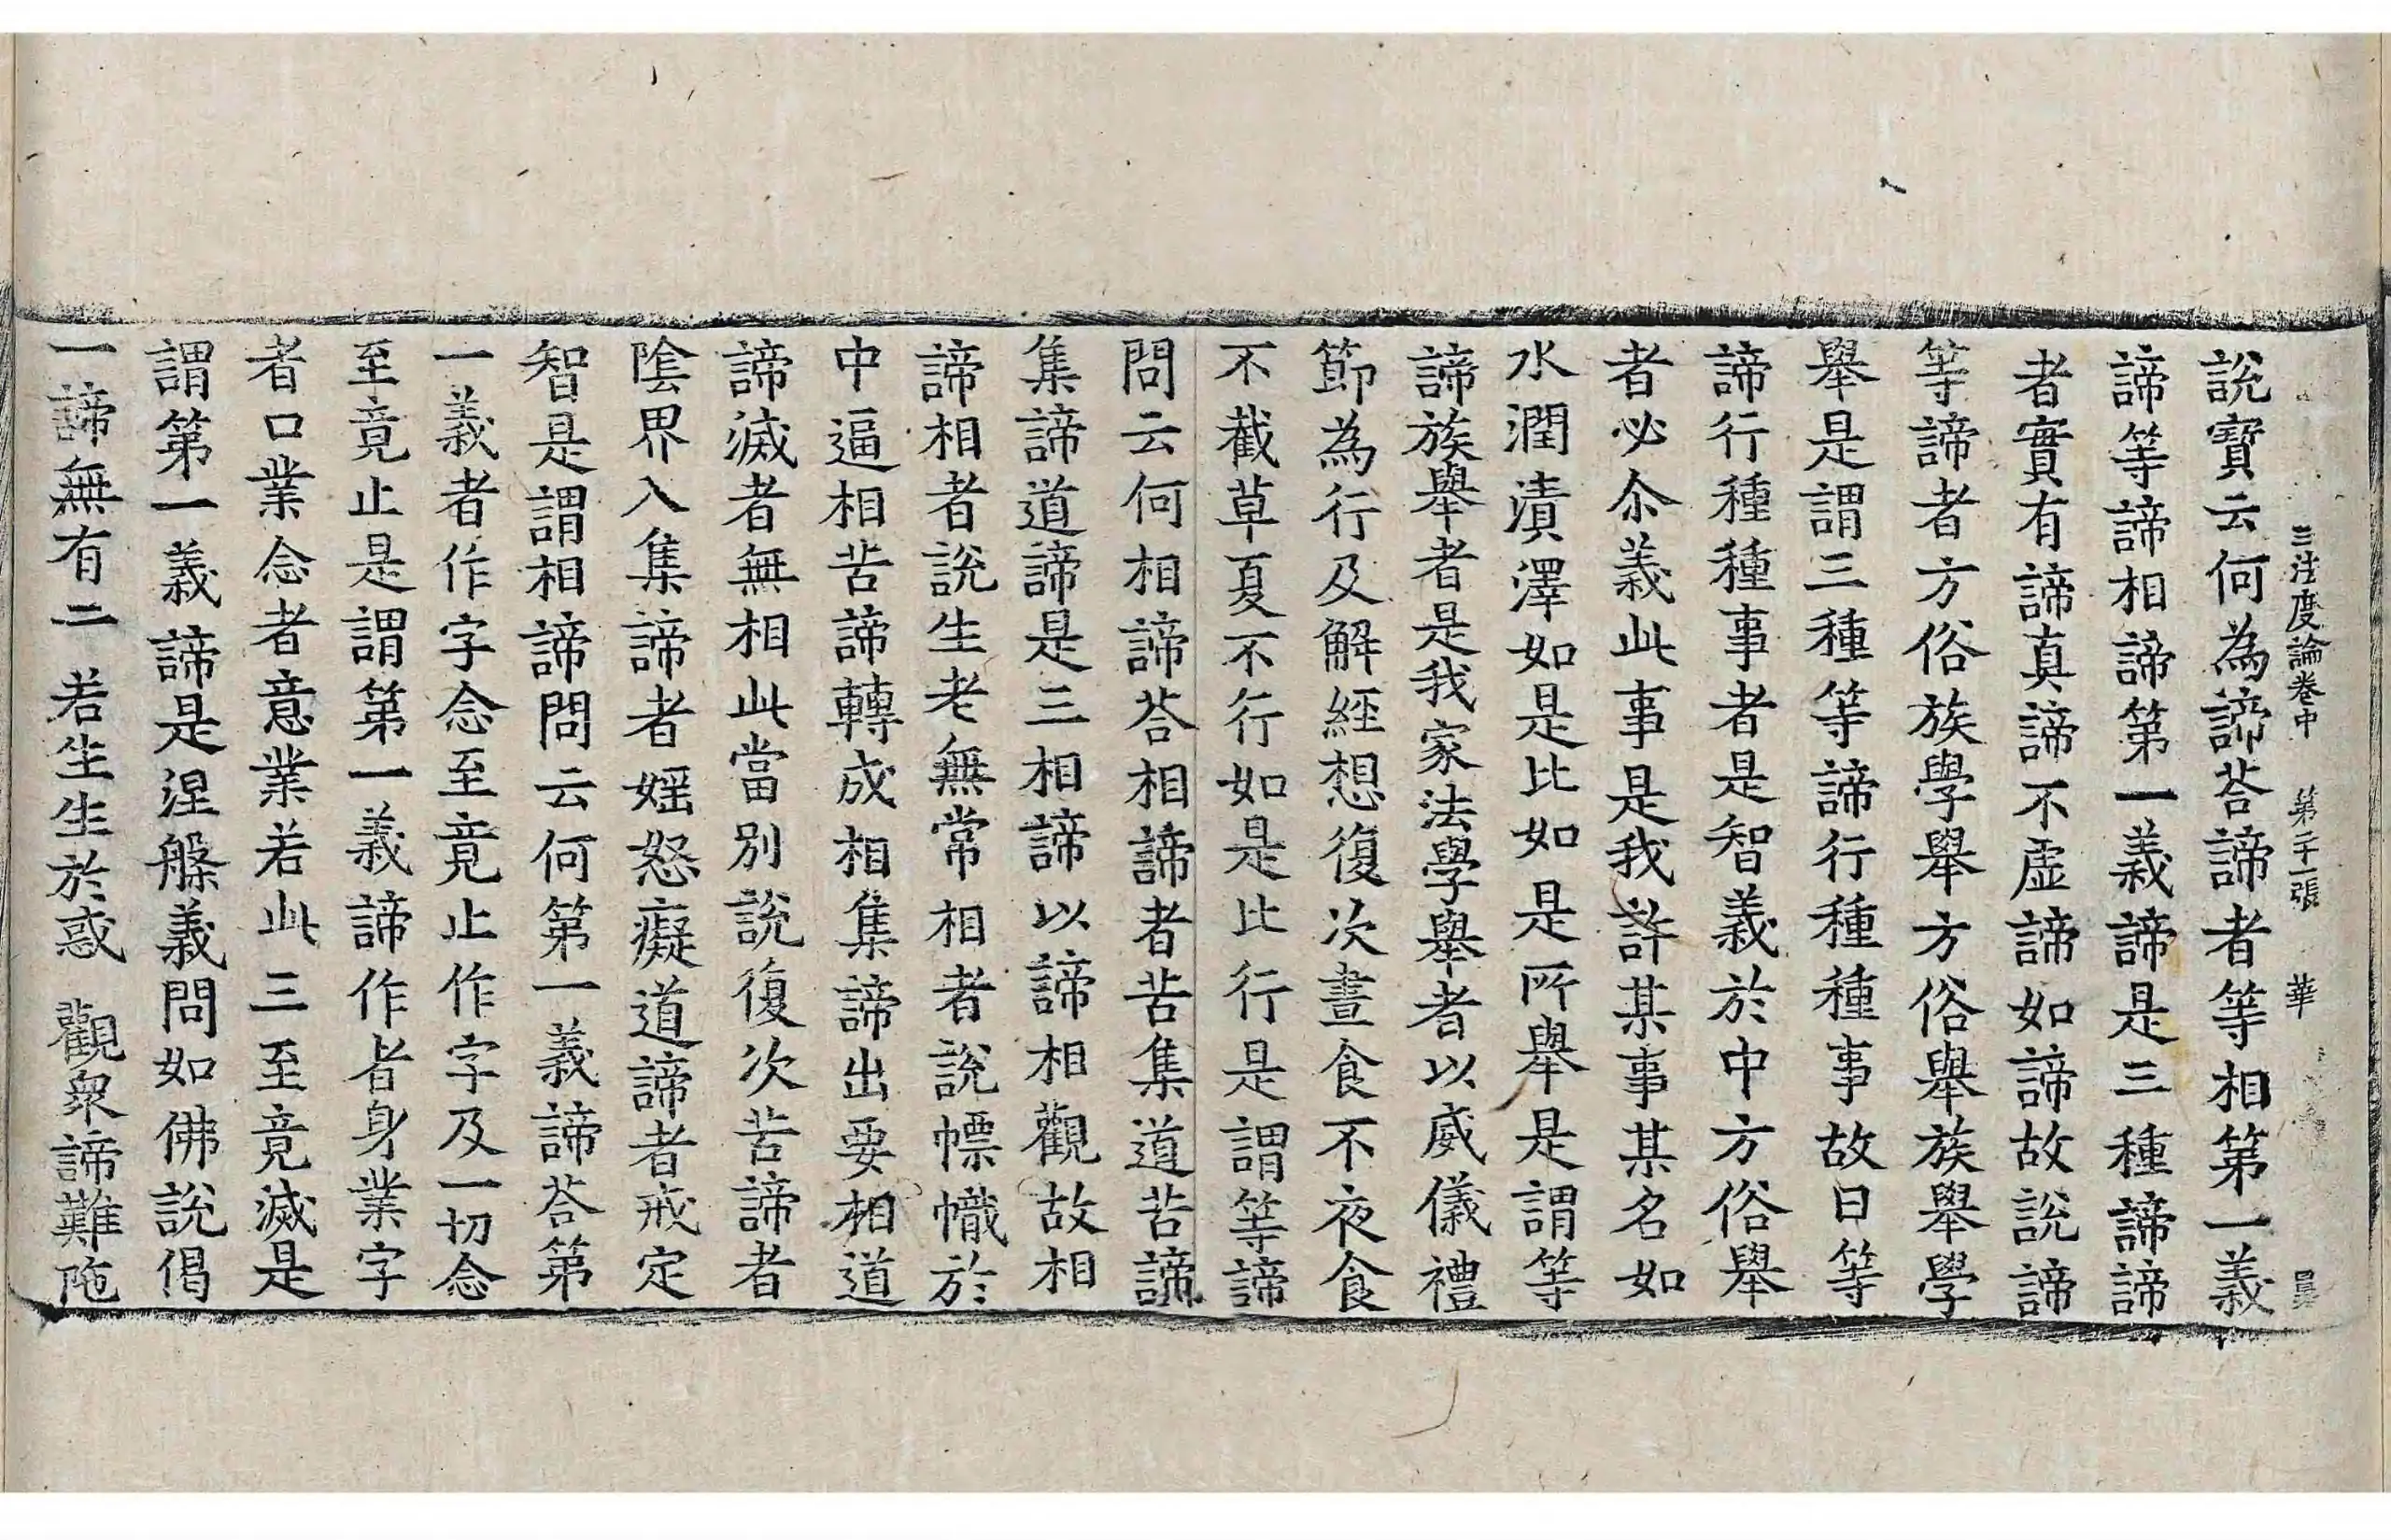 三法度論卷中 第二十一張 華
說寶云何為諦荅諦者等相第一義
諦等諦相諦第一義諦是三種諦諦
者實有諦真諦不虛諦如諦故說諦
等諦者方俗族學舉方俗舉族舉學
舉是謂三種等諦行種種事故曰等
諦行種種事者是智義於中方俗舉
者必尒義此事是我許某事某名如
水潤漬澤如是比如是所舉是謂等
諦族舉者是我家法學舉者以威儀禮
節為行及解經想復次晝食不夜食
不截草夏不行如是比行是謂等諦
問云何相諦荅相諦者苦集道苦諦
集諦道諦是三相諦以諦相觀故相
諦相者說生老無常相者說幖幟於
中逼相苦諦轉成相集諦出要相道
諦滅者無相此當別說復次苦諦者
陰界入集諦者婬怒癡道諦者戒定
智是謂相諦問云何第一義諦荅第
一義者作字念至竟止作字及一切念
至竟止是謂第一義諦作者身業字
者口業念者意業若此三至竟滅是
謂第一義諦是涅槃義問如佛說偈
一諦無有二 若生生於惑 觀衆諦難陁